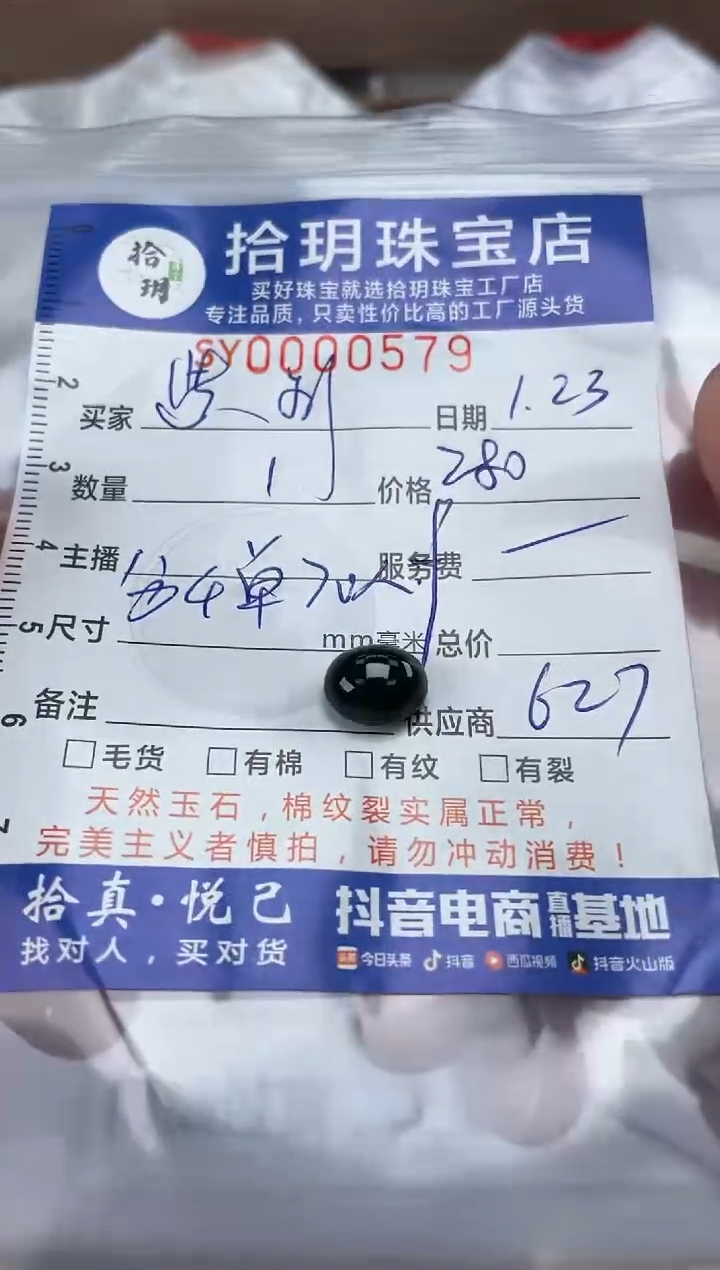 拾玥
拾玥珠宝店
买好珠宝就选拾玥珠宝工厂店
专注品质，只卖性价比高的工厂源头货
SY0000579
买家 日期 1.23
数量 1 价格 280
主播 服务费
尺寸 mm毫米 总价
备注 供应商 627
毛货 有棉 有纹 有裂
天然玉石，棉纹裂实属正常，
完美主义者慎拍，请勿冲动消费！
拾真·悦己 抖音电商直播基地
找对人，买对货 头条 今日头条 抖音 西瓜视频 抖音火山版
2
3
4
5
6
7